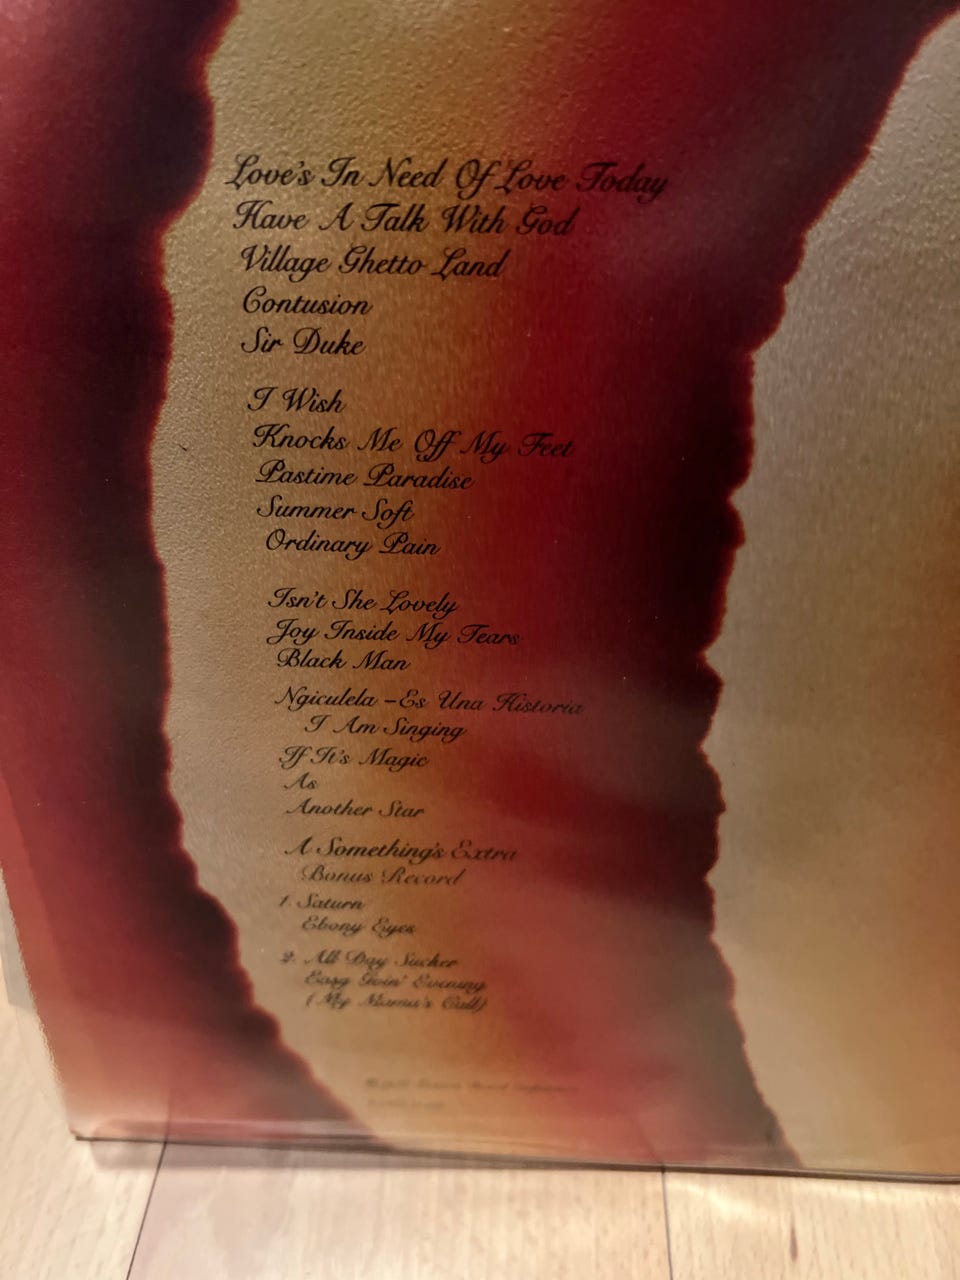 Love's In Need Of Love Today
Have A Talk With God
Village Ghetto Land
Contusion
Sir Duke
I Wish
Knocks Me Off My Feet
Pastime Paradise
Summer Soft
Ordinary Pain
Isn't She Lovely
Joy Inside My Tears
Black Man
Ngiculela – Es Una Historia
I Am Singing
If It's Magic
As
Another Star
A Something's Extra
Bonus Record
1. Saturn
Ebony Eyes
2. All Day Sucker
Easy Goin' Evening
(My Mama's Call)